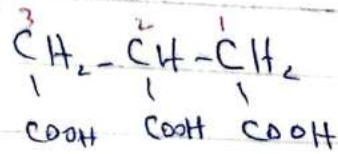 3 2 1
CH₂-CH-CH₂
COOH COOH COOH